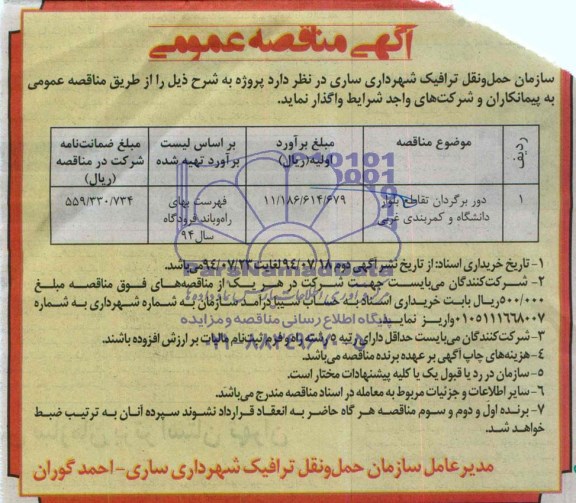 آگهی مناقصه عمومی
سازمان حمل‌ونقل ترافیک شهرداری ساری در نظر دارد پروژه به شرح ذیل را از طریق مناقصه عمومی
به پیمانکاران و شرکت‌های واجد شرایط واگذار نماید.
ردیف
موضوع مناقصه
مبلغ برآورد اولیه(ریال)
بر اساس لیست برآورد تهیه شده
مبلغ ضمانت‌نامه شرکت در مناقصه (ریال)
۱
دور برگردان تقاطع بلوار دانشگاه و کمربندی غربی
۱۱/۱۸۶/۶۱۴/۶۷۹
فهرست بهای راه‌وباند فرودگاه سال ۹۴
۵۵۹/۳۳۰/۷۳۴
۱- تاریخ خریداری اسناد: از تاریخ نشر آگهی دوم ۹۴/۰۷/۱۸ لغایت ۹۴/۰۷/۲۲ می‌باشد.
۲- شرکت‌کنندگان می‌بایست جهت شرکت در هر یک از مناقصه‌های فوق مناقصه مبلغ
۵۰۰/۰۰۰ریال بابت خریداری اسناد به حساب سیبا درآمد سازمان به شماره شهرداری به شماره
۰۱۰۵۱۱۱۶۶۸۰۰۷ واریز نمایید.
۳- شرکت‌کنندگان می‌بایست حداقل دارای رتبه ۵ رشته راه و جزء ثبت‌نام مالیات بر ارزش افزوده باشند.
۴- هزینه‌های چاپ آگهی بر عهده برنده مناقصه می‌باشد.
۵- سازمان در رد یا قبول یک یا کلیه پیشنهادات مختار است.
۶- سایر اطلاعات و جزئیات مربوط به معامله در اسناد مناقصه مندرج می‌باشد.
۷- برنده اول و دوم و سوم مناقصه هر گاه حاضر به انعقاد قرارداد نشوند سپرده آنان به ترتیب ضبط
خواهد شد.
مدیرعامل سازمان حمل‌ونقل ترافیک شهرداری ساری - احمد گوران
ParsNamadData
پایگاه اطلاع رسانی مناقصه و مزایده